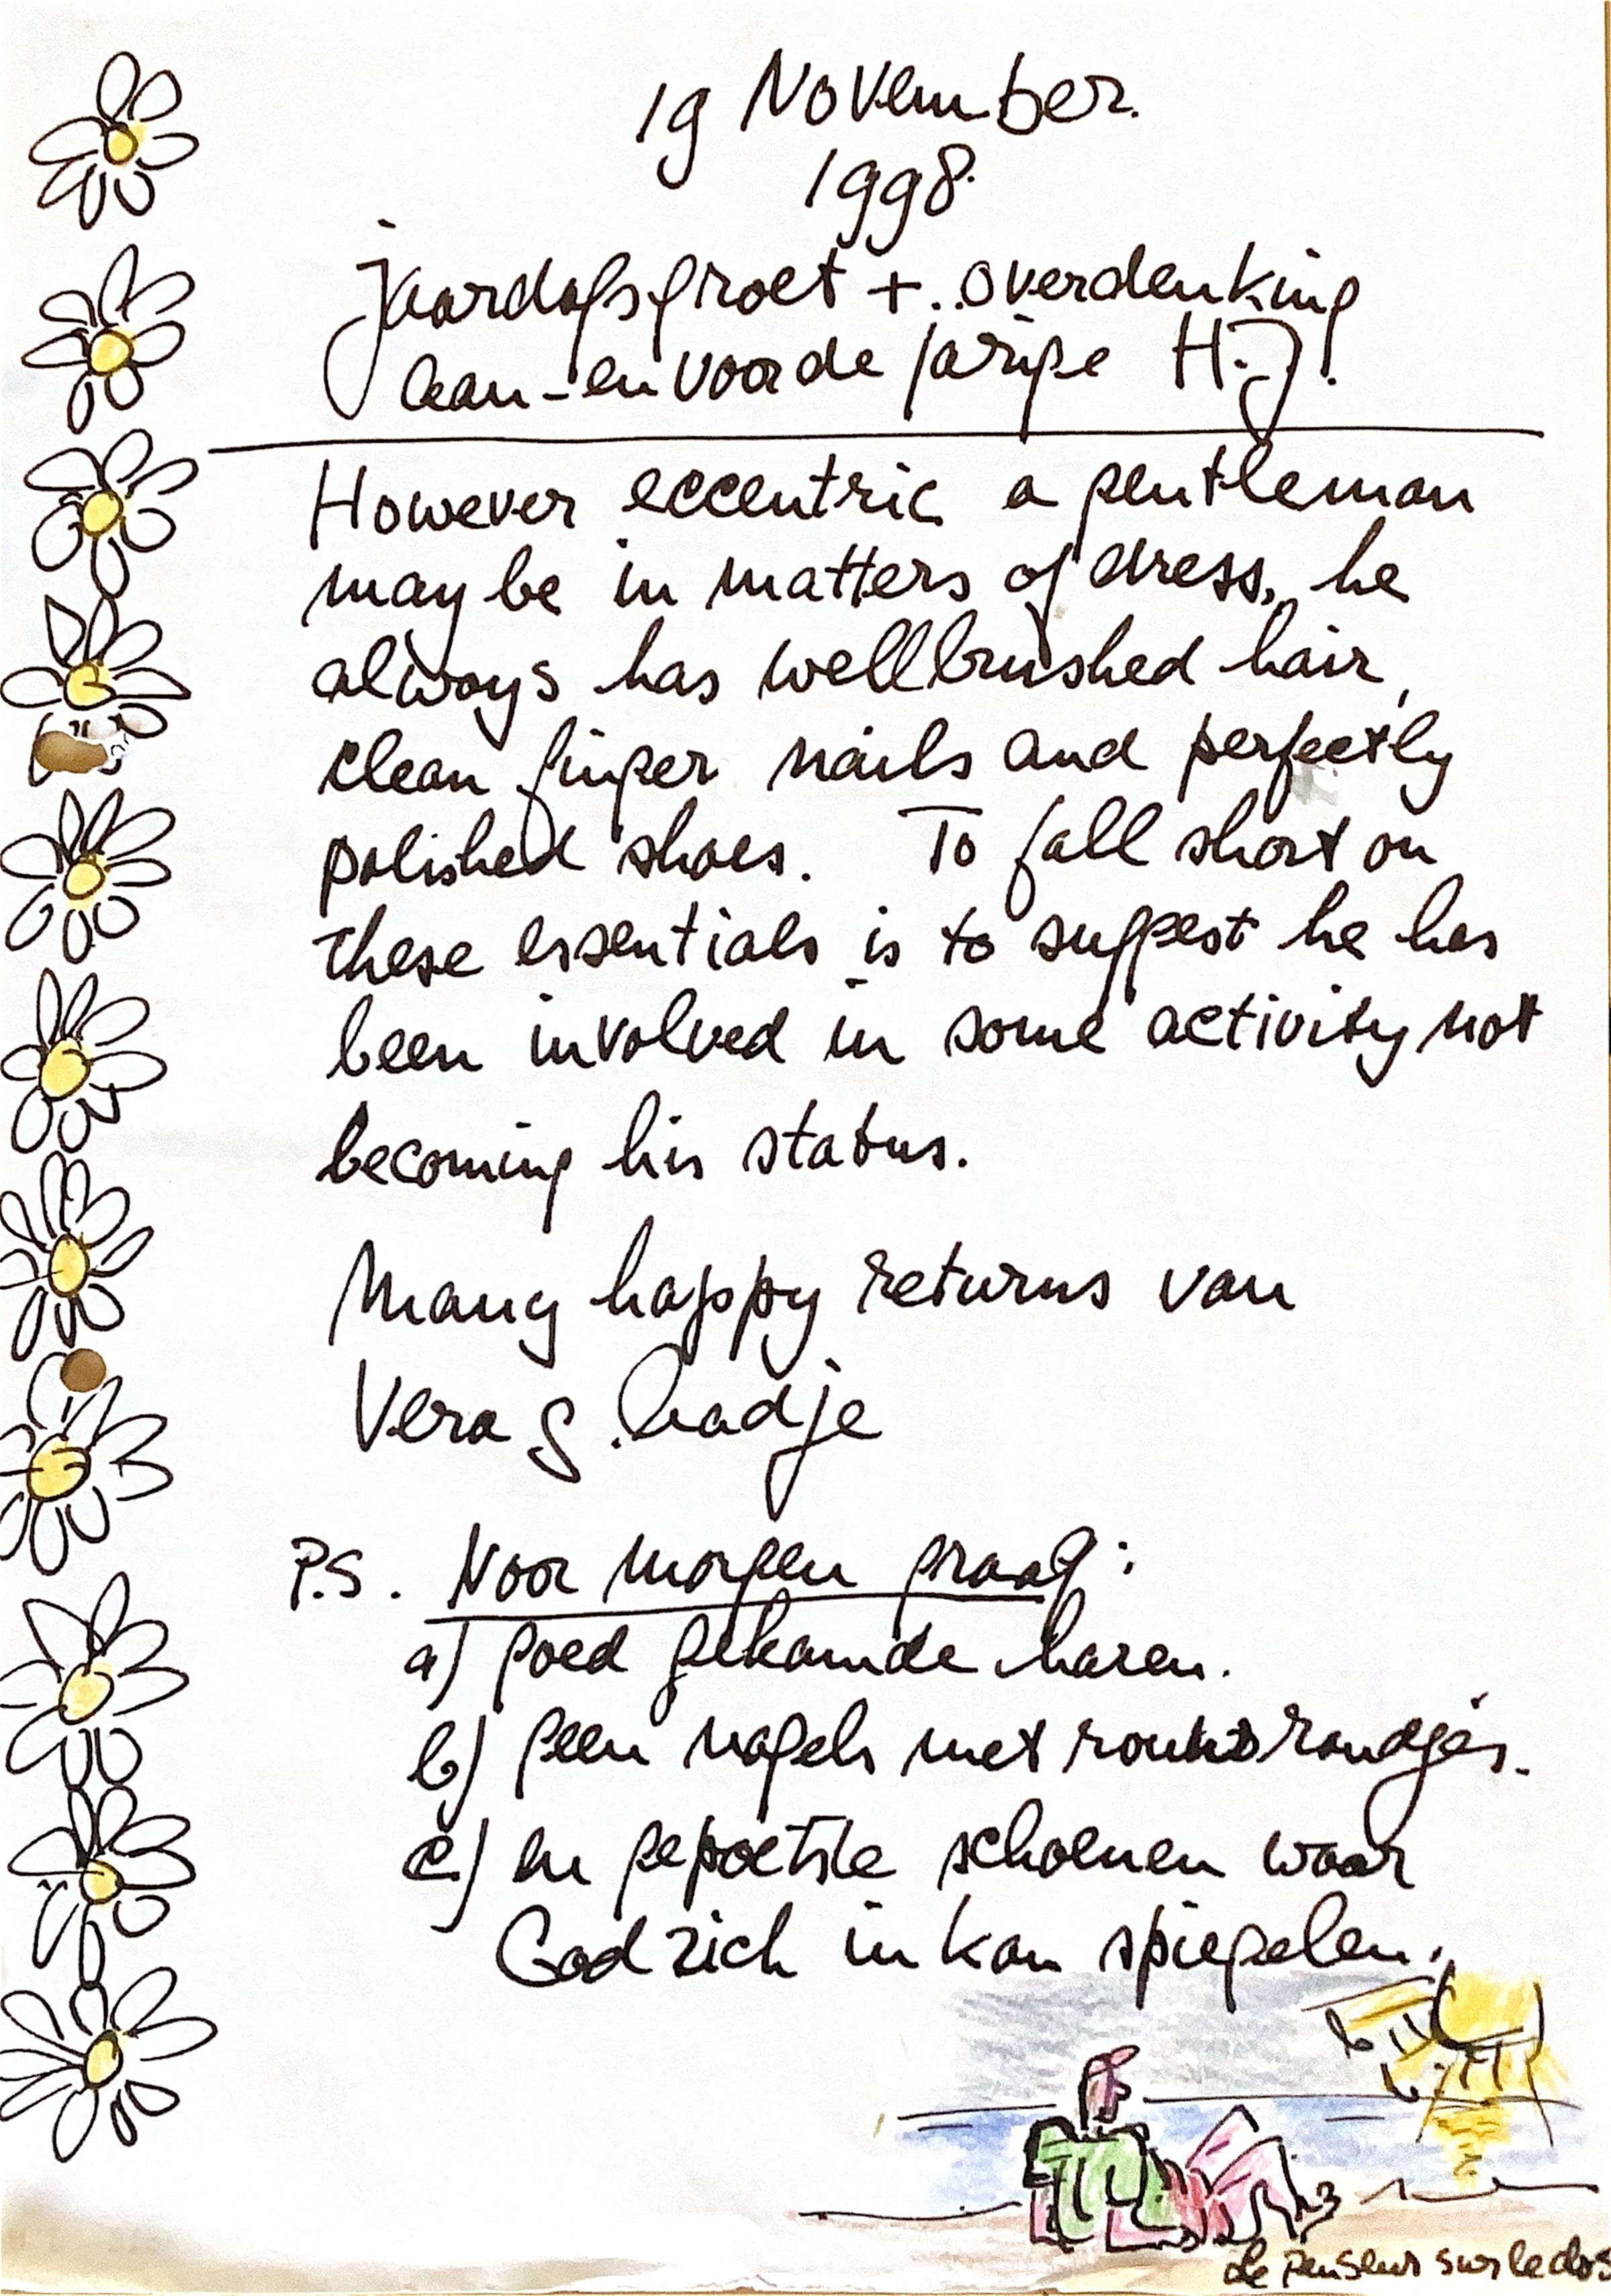 19 November.
1998.
Jaardagsgroet + .. overdenking
aan - en voor de jarige H.J!
However eccentric a gentleman
may be in matters of dress, he
always has wellbrushed hair,
clean finger nails and perfectly
polished shoes. To fall short on
these essentials is to suggest he has
been involved in some activity not
becoming his status.
Many happy returns van
Vera &
P.S. Voor morgen graag:
a) goed gekamde haren.
b) geen nagels met rouwrandjes.
c) en gepoetste schoenen waar
God zich in kan spiegelen.
Le Penseur sur le dos